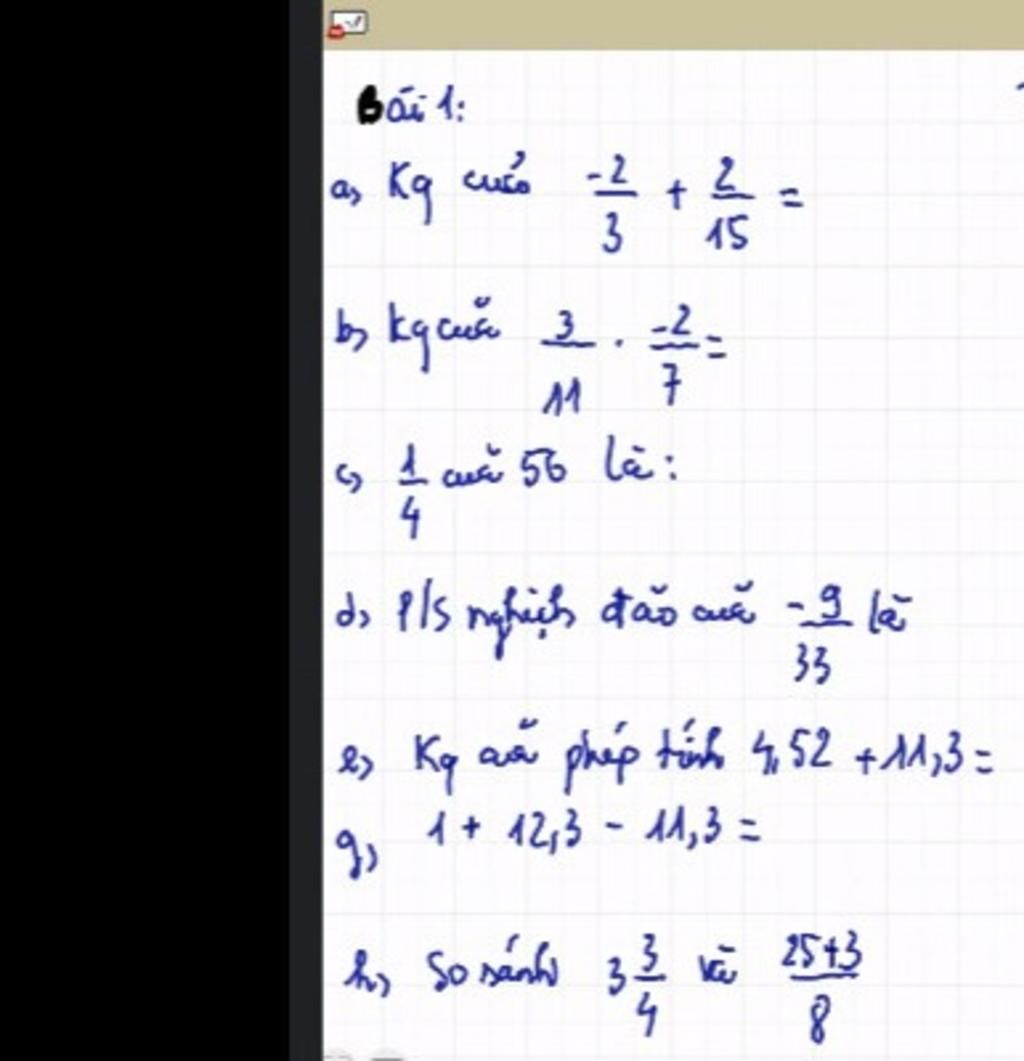 Bài 1:
a) Kq của -2/3 + 2/15 =
b) kq của 3/11 . -2/7 =
c) 1/4 của 56 là:
d) P/S nghịch đảo của -9/33 là
e) Kq của phép tính 4,52 + 11,3 =
g) 1 + 12,3 - 11,3 =
h) So sánh 3 3/4 và 25+3/8